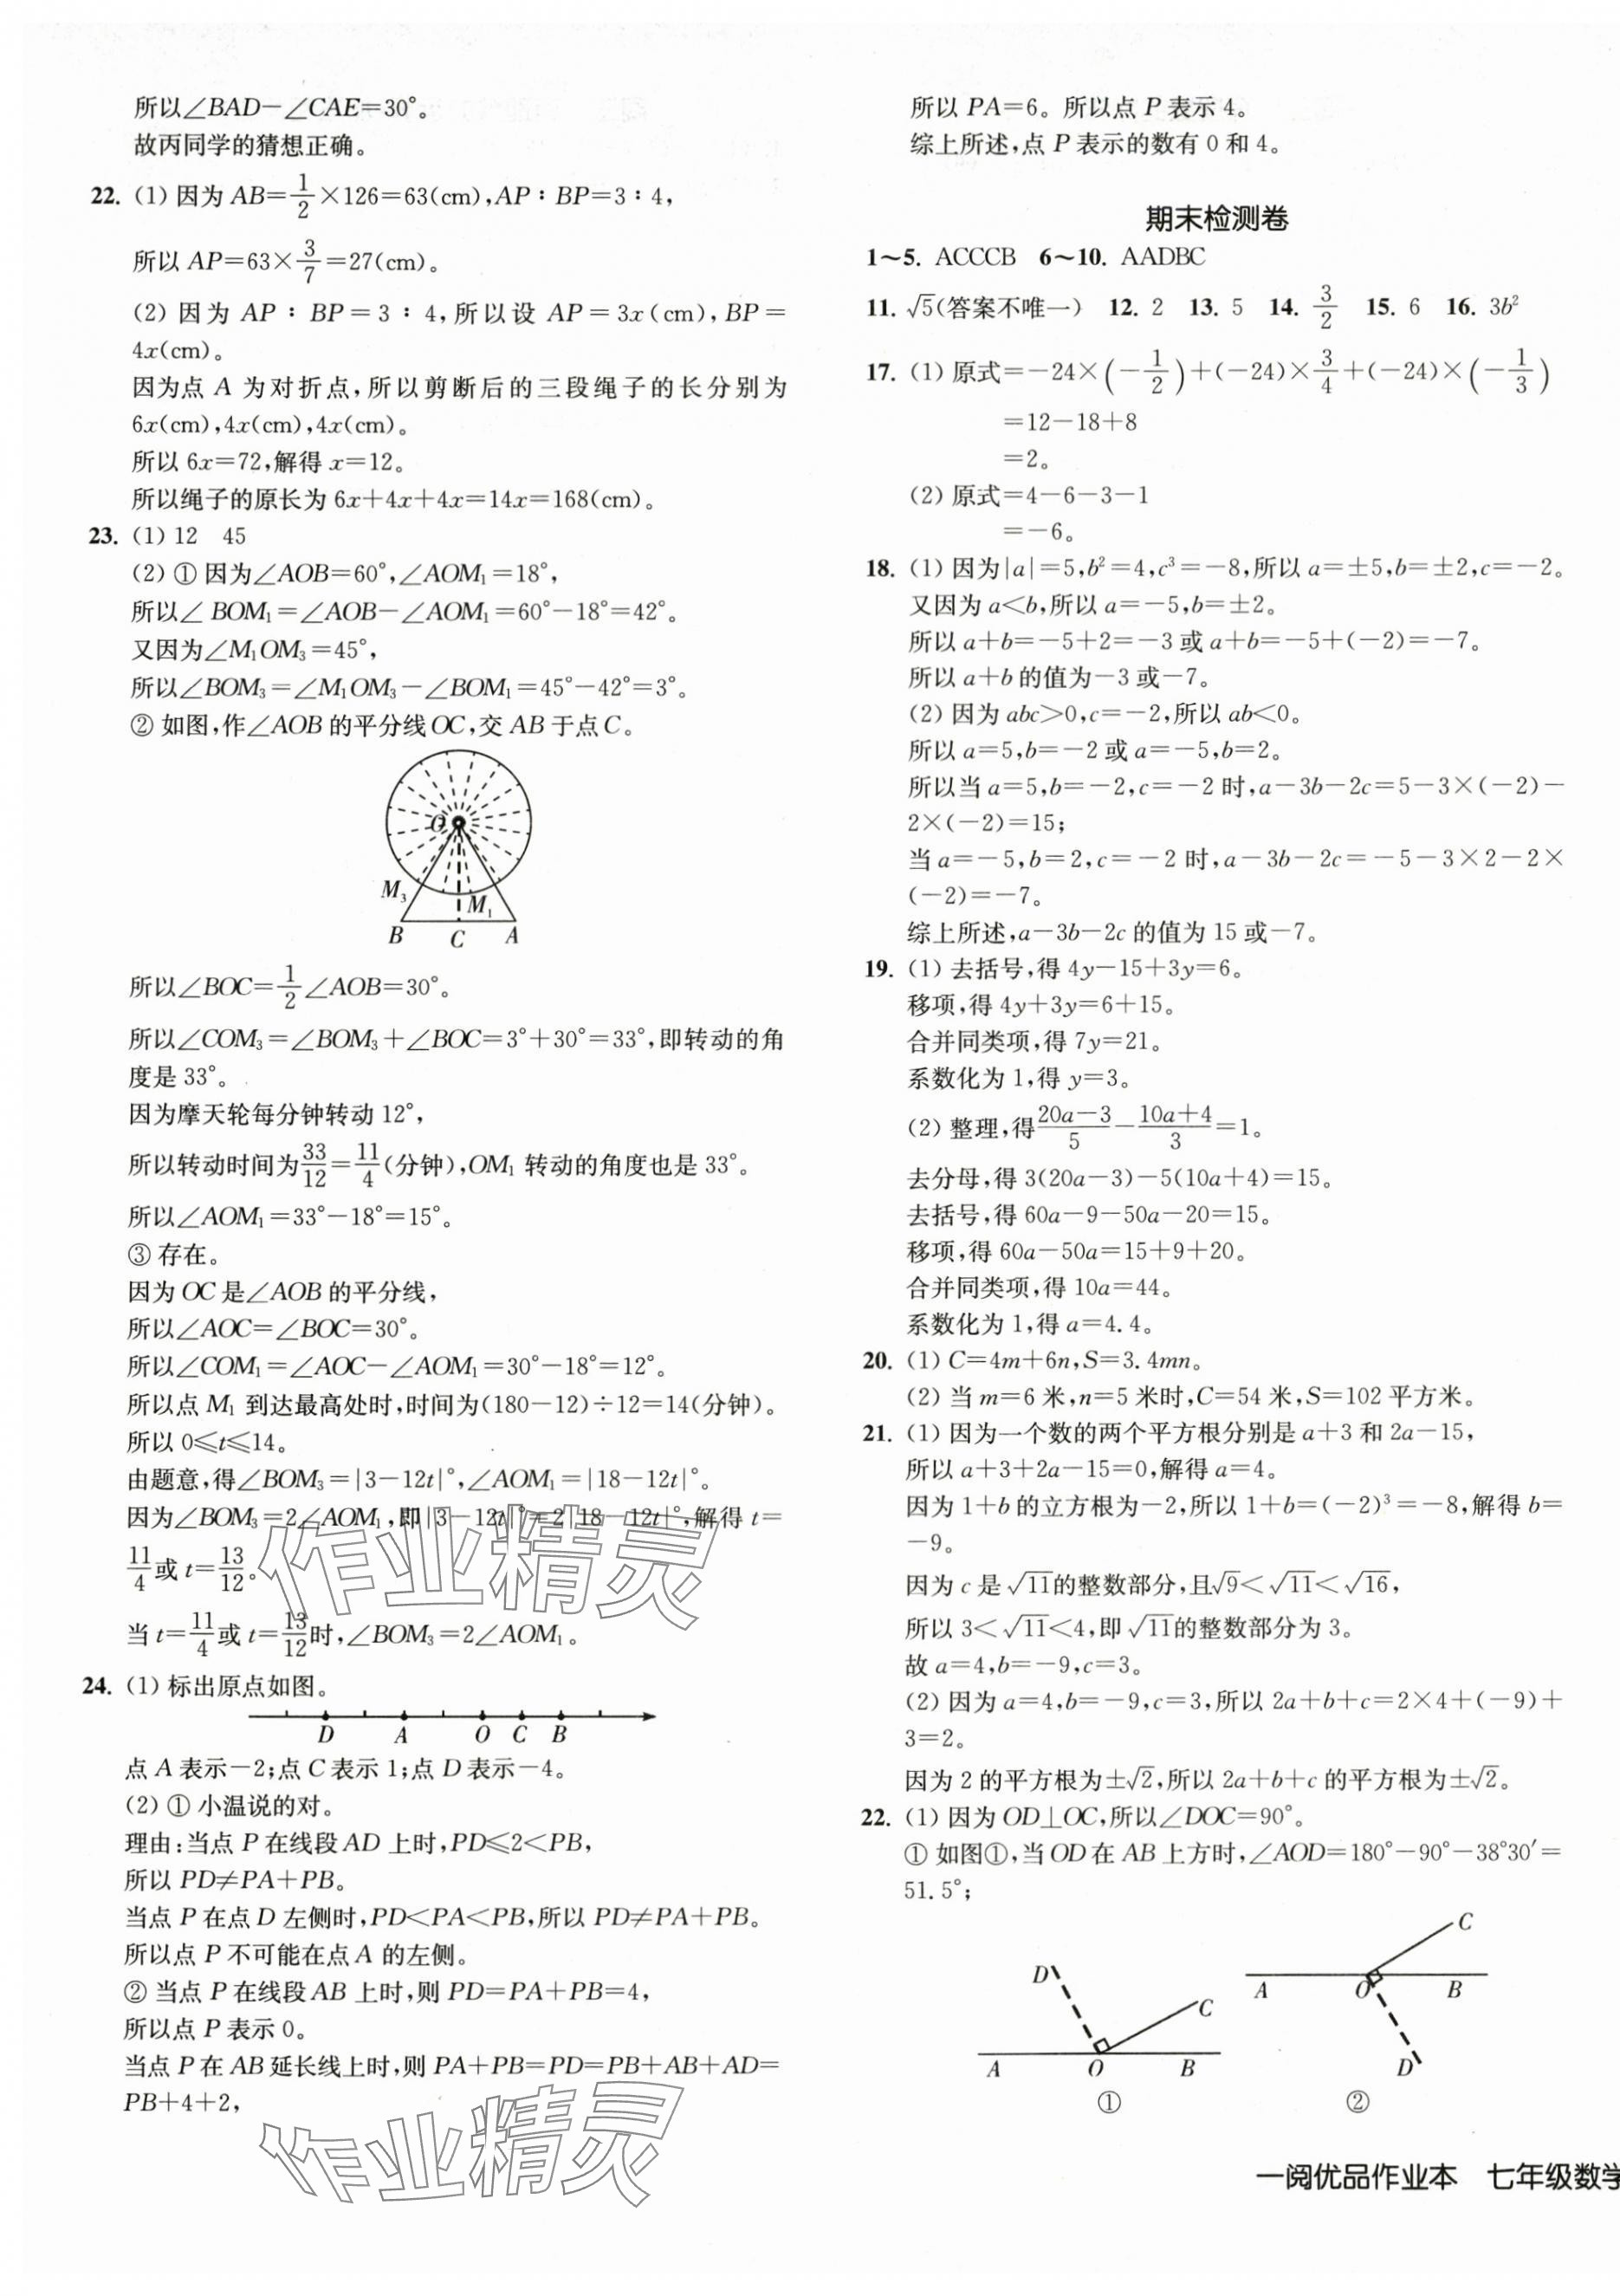 所以∠BAD－∠CAE＝30°。
故丙同学的猜想正确。
22. (1) 因为 AB＝1/2×126＝63(cm),AP∶BP＝3∶4,
所以 AP＝63×3/7＝27(cm)。
(2) 因为 AP∶BP＝3∶4,所以设 AP＝3x(cm),BP＝
4x(cm)。
因为点 A 为对折点,所以剪断后的三段绳子的长分别为
6x(cm),4x(cm),4x(cm)。
所以 6x＝72,解得 x＝12。
所以绳子的原长为 6x＋4x＋4x＝14x＝168(cm)。
23. (1) 12 45
(2) ① 因为∠AOB＝60°,∠AOM₁＝18°,
所以∠BOM₁＝∠AOB－∠AOM₁＝60°－18°＝42°。
又因为∠M₁OM₃＝45°,
所以∠BOM₃＝∠M₁OM₃－∠BOM₁＝45°－42°＝3°。
② 如图,作∠AOB 的平分线 OC,交 AB 于点 C。
O
M₃
M₁
B C A
所以∠BOC＝1/2∠AOB＝30°。
所以∠COM₃＝∠BOM₃＋∠BOC＝3°＋30°＝33°,即转动的角
度是 33°。
因为摩天轮每分钟转动 12°,
所以转动时间为33/12＝11/4(分钟),OM₁ 转动的角度也是 33°。
所以∠AOM₁＝33°－18°＝15°。
③ 存在。
因为 OC 是∠AOB 的平分线,
所以∠AOC＝∠BOC＝30°。
所以∠COM₁＝∠AOC－∠AOM₁＝30°－18°＝12°。
所以点 M₁ 到达最高处时,时间为(180－12)÷12＝14(分钟)。
所以 0≤t≤14。
由题意,得∠BOM₃＝|3－12t|°,∠AOM₁＝|18－12t|°。
因为∠BOM₃＝2∠AOM₁,即|3－12t|°＝2|18－12t|°,解得 t＝
11/4或 t＝13/12。
当 t＝11/4或 t＝13/12时,∠BOM₃＝2∠AOM₁。
24. (1) 标出原点如图。
D A O C B
点 A 表示－2;点 C 表示 1;点 D 表示－4。
(2) ① 小温说的对。
理由:当点 P 在线段 AD 上时,PD≤2＜PB,
所以 PD≠PA＋PB。
当点 P 在点 D 左侧时,PD＜PA＜PB,所以 PD≠PA＋PB。
所以点 P 不可能在点 A 的左侧。
② 当点 P 在线段 AB 上时,则 PD＝PA＋PB＝4,
所以点 P 表示 0。
当点 P 在 AB 延长线上时,则 PA＋PB＝PD＝PB＋AB＋AD＝
PB＋4＋2,
作业精灵
作业精灵
所以 PA＝6。所以点 P 表示 4。
综上所述,点 P 表示的数有 0 和 4。
期末检测卷
1～5. ACCCB 6～10. AADBC
11. √5(答案不唯一) 12. 2 13. 5 14. 3/2 15. 6 16. 3b²
17. (1) 原式＝－24×(－1/2)＋(－24)×3/4＋(－24)×(－1/3)
＝12－18＋8
＝2。
(2) 原式＝4－6－3－1
＝－6。
18. (1) 因为|a|＝5,b²＝4,c³＝－8,所以 a＝±5,b＝±2,c＝－2。
又因为 a＜b,所以 a＝－5,b＝±2。
所以 a＋b＝－5＋2＝－3 或 a＋b＝－5＋(－2)＝－7。
所以 a＋b 的值为－3 或－7。
(2) 因为 abc＞0,c＝－2,所以 ab＜0。
所以 a＝5,b＝－2 或 a＝－5,b＝2。
所以当 a＝5,b＝－2,c＝－2 时,a－3b－2c＝5－3×(－2)－
2×(－2)＝15;
当 a＝－5,b＝2,c＝－2 时,a－3b－2c＝－5－3×2－2×
(－2)＝－7。
综上所述,a－3b－2c 的值为 15 或－7。
19. (1) 去括号,得 4y－15＋3y＝6。
移项,得 4y＋3y＝6＋15。
合并同类项,得 7y＝21。
系数化为 1,得 y＝3。
(2) 整理,得(20a－3)/5－(10a＋4)/3＝1。
去分母,得 3(20a－3)－5(10a＋4)＝15。
去括号,得 60a－9－50a－20＝15。
移项,得 60a－50a＝15＋9＋20。
合并同类项,得 10a＝44。
系数化为 1,得 a＝4.4。
20. (1) C＝4m＋6n,S＝3.4mn。
(2) 当 m＝6 米,n＝5 米时,C＝54 米,S＝102 平方米。
21. (1) 因为一个数的两个平方根分别是 a＋3 和 2a－15,
所以 a＋3＋2a－15＝0,解得 a＝4。
因为 1＋b 的立方根为－2,所以 1＋b＝(－2)³＝－8,解得 b＝
－9。
因为 c 是 √11的整数部分,且√9＜√11＜√16,
所以 3＜√11＜4,即 √11的整数部分为 3。
故 a＝4,b＝－9,c＝3。
(2) 因为 a＝4,b＝－9,c＝3,所以 2a＋b＋c＝2×4＋(－9)＋
3＝2。
因为 2 的平方根为±√2,所以 2a＋b＋c 的平方根为±√2。
22. (1) 因为 OD⊥OC,所以∠DOC＝90°。
① 如图①,当 OD 在 AB 上方时,∠AOD＝180°－90°－38°30′＝
51.5°;
D C
A O B
①
C
A O B
D
②
一阅优品作业本 七年级数学